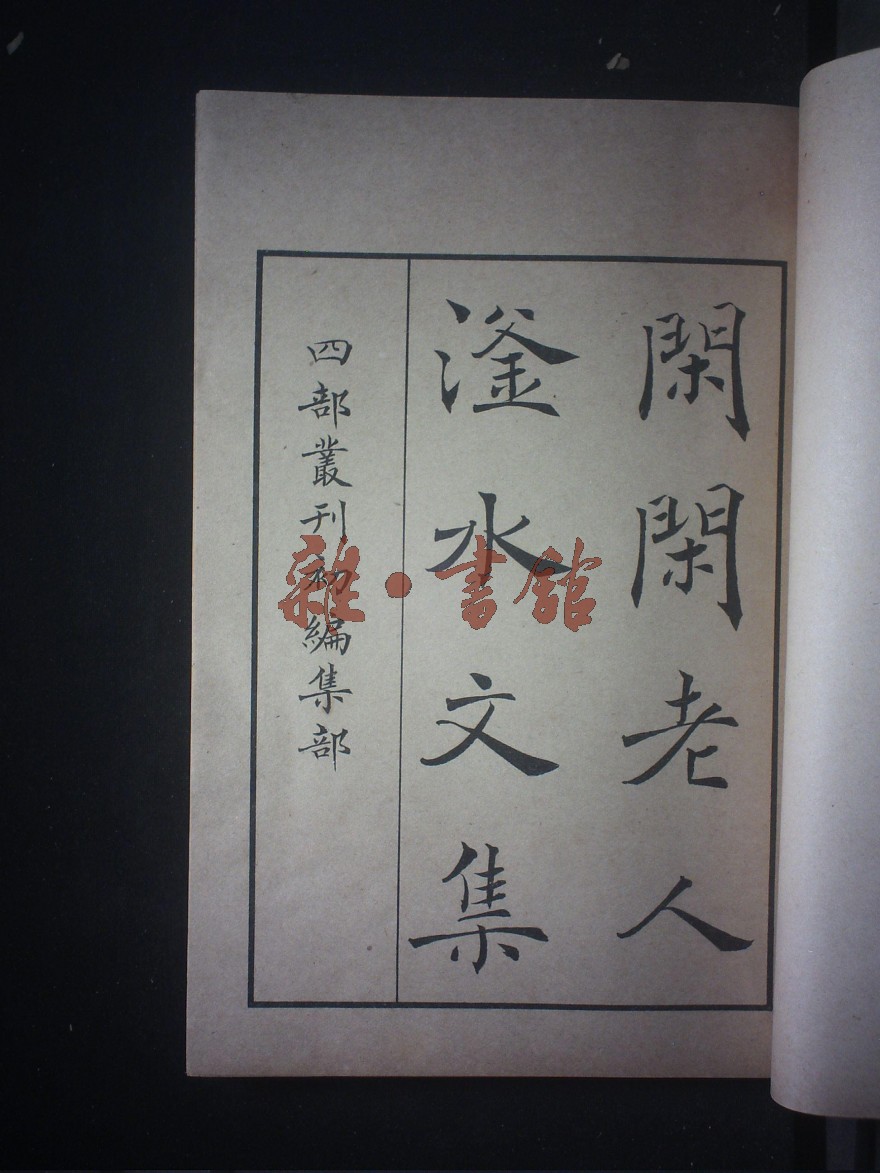 閑閑老人
滏水文集
四部叢刊初編集部
雜·書館